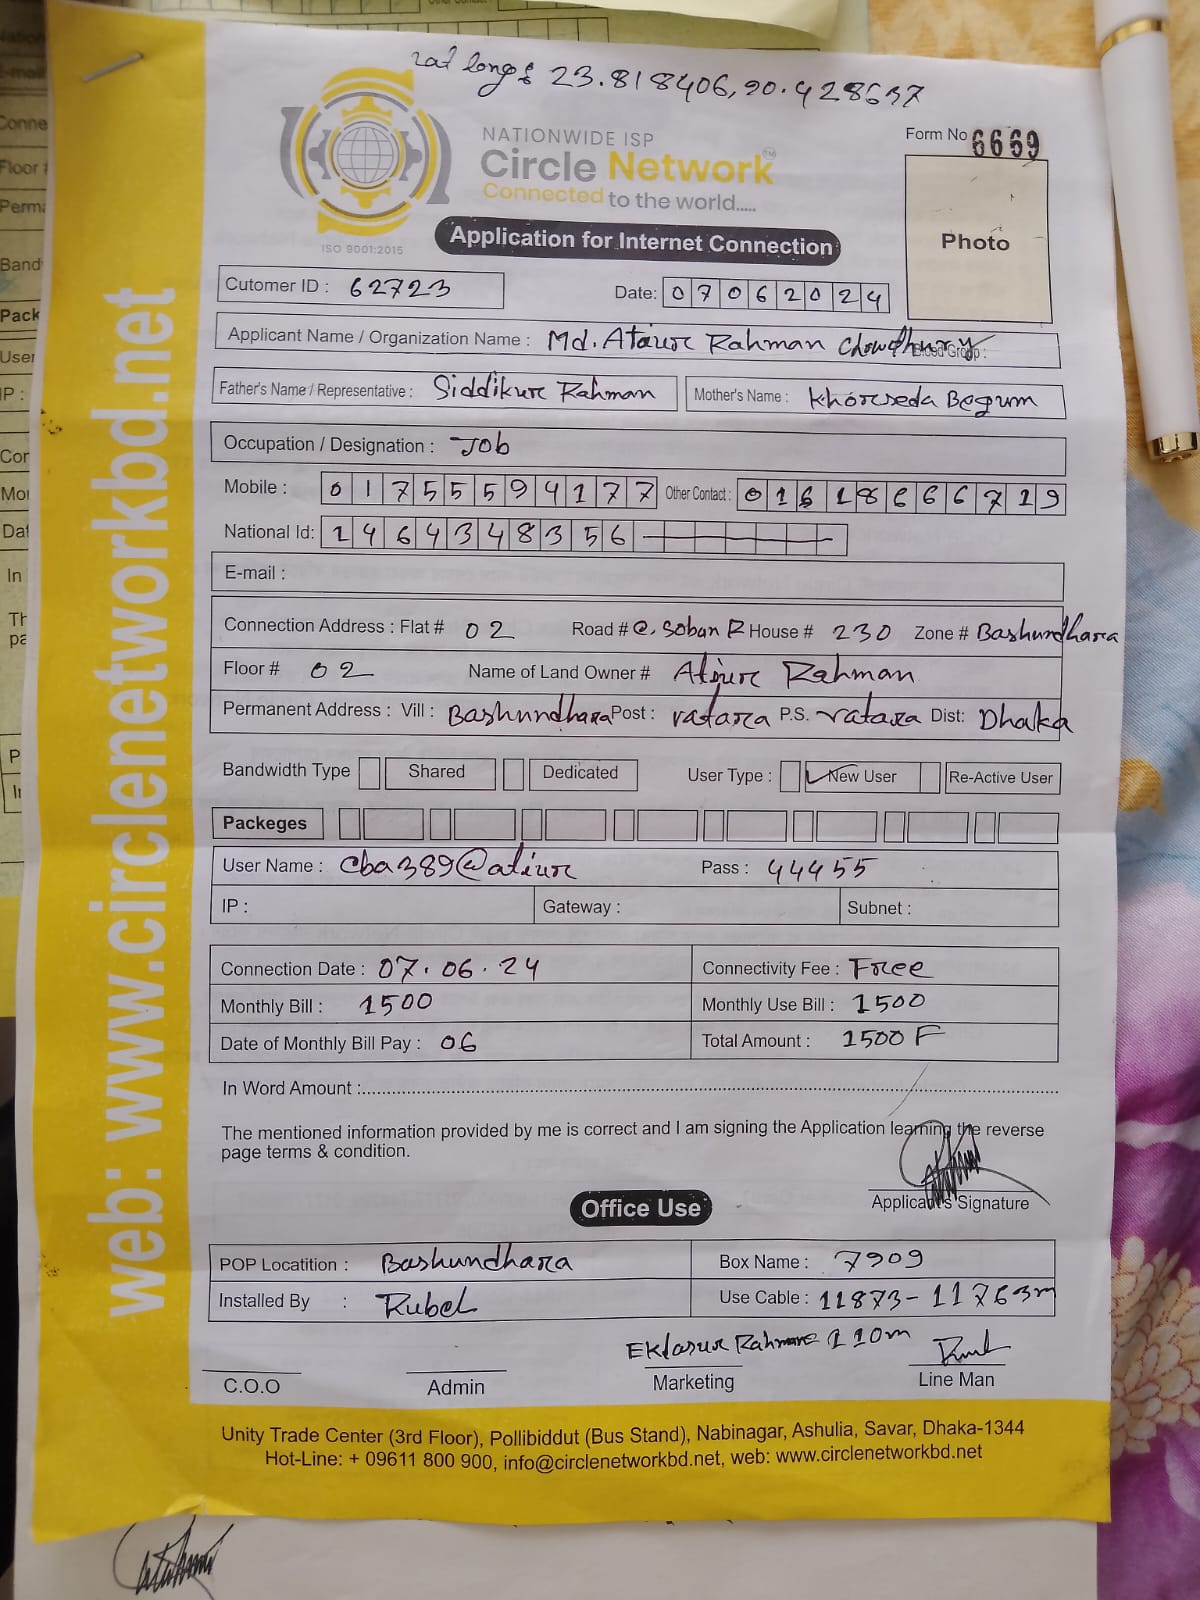 Lat long : 23.818406, 90.428637
NATIONWIDE ISP
Circle Network™
Connected to the world.....
ISO 9001:2015
Form No 6669
Photo
Application for Internet Connection
Cutomer ID : 62723
Date: 07062024
Applicant Name / Organization Name : Md. Ataur Rahman Chowdhury Blood Group :
Father's Name / Representative : Siddikur Rahman Mother's Name : Khorseda Begum
Occupation / Designation : Job
Mobile : 01755594177 Other Contact : 01618666719
National Id: 1464348356
E-mail :
Connection Address : Flat # 02 Road # @. Soban R House # 230 Zone # Bashundhara
Floor # 02 Name of Land Owner # Atiur Rahman
Permanent Address : Vill : Bashundhara Post : vatara P.S. vatara Dist: Dhaka
Bandwidth Type Shared Dedicated User Type : New User Re-Active User
Packeges
User Name : cba389@atiur Pass : 44455
IP : Gateway : Subnet :
Connection Date : 07.06.24 Connectivity Fee : Free
Monthly Bill : 1500 Monthly Use Bill : 1500
Date of Monthly Bill Pay : 06 Total Amount : 1500 F
In Word Amount :
The mentioned information provided by me is correct and I am signing the Application learning the reverse
page terms & condition.
Applicant's Signature
Office Use
POP Locatition : Bashundhara Box Name : 7909
Installed By : Rubel Use Cable : 11873-11763m
Rahman 110m
C.O.O Admin Marketing Line Man
Unity Trade Center (3rd Floor), Pollibiddut (Bus Stand), Nabinagar, Ashulia, Savar, Dhaka-1344
Hot-Line: + 09611 800 900, info@circlenetworkbd.net, web: www.circlenetworkbd.net
web: www.circlenetworkbd.net